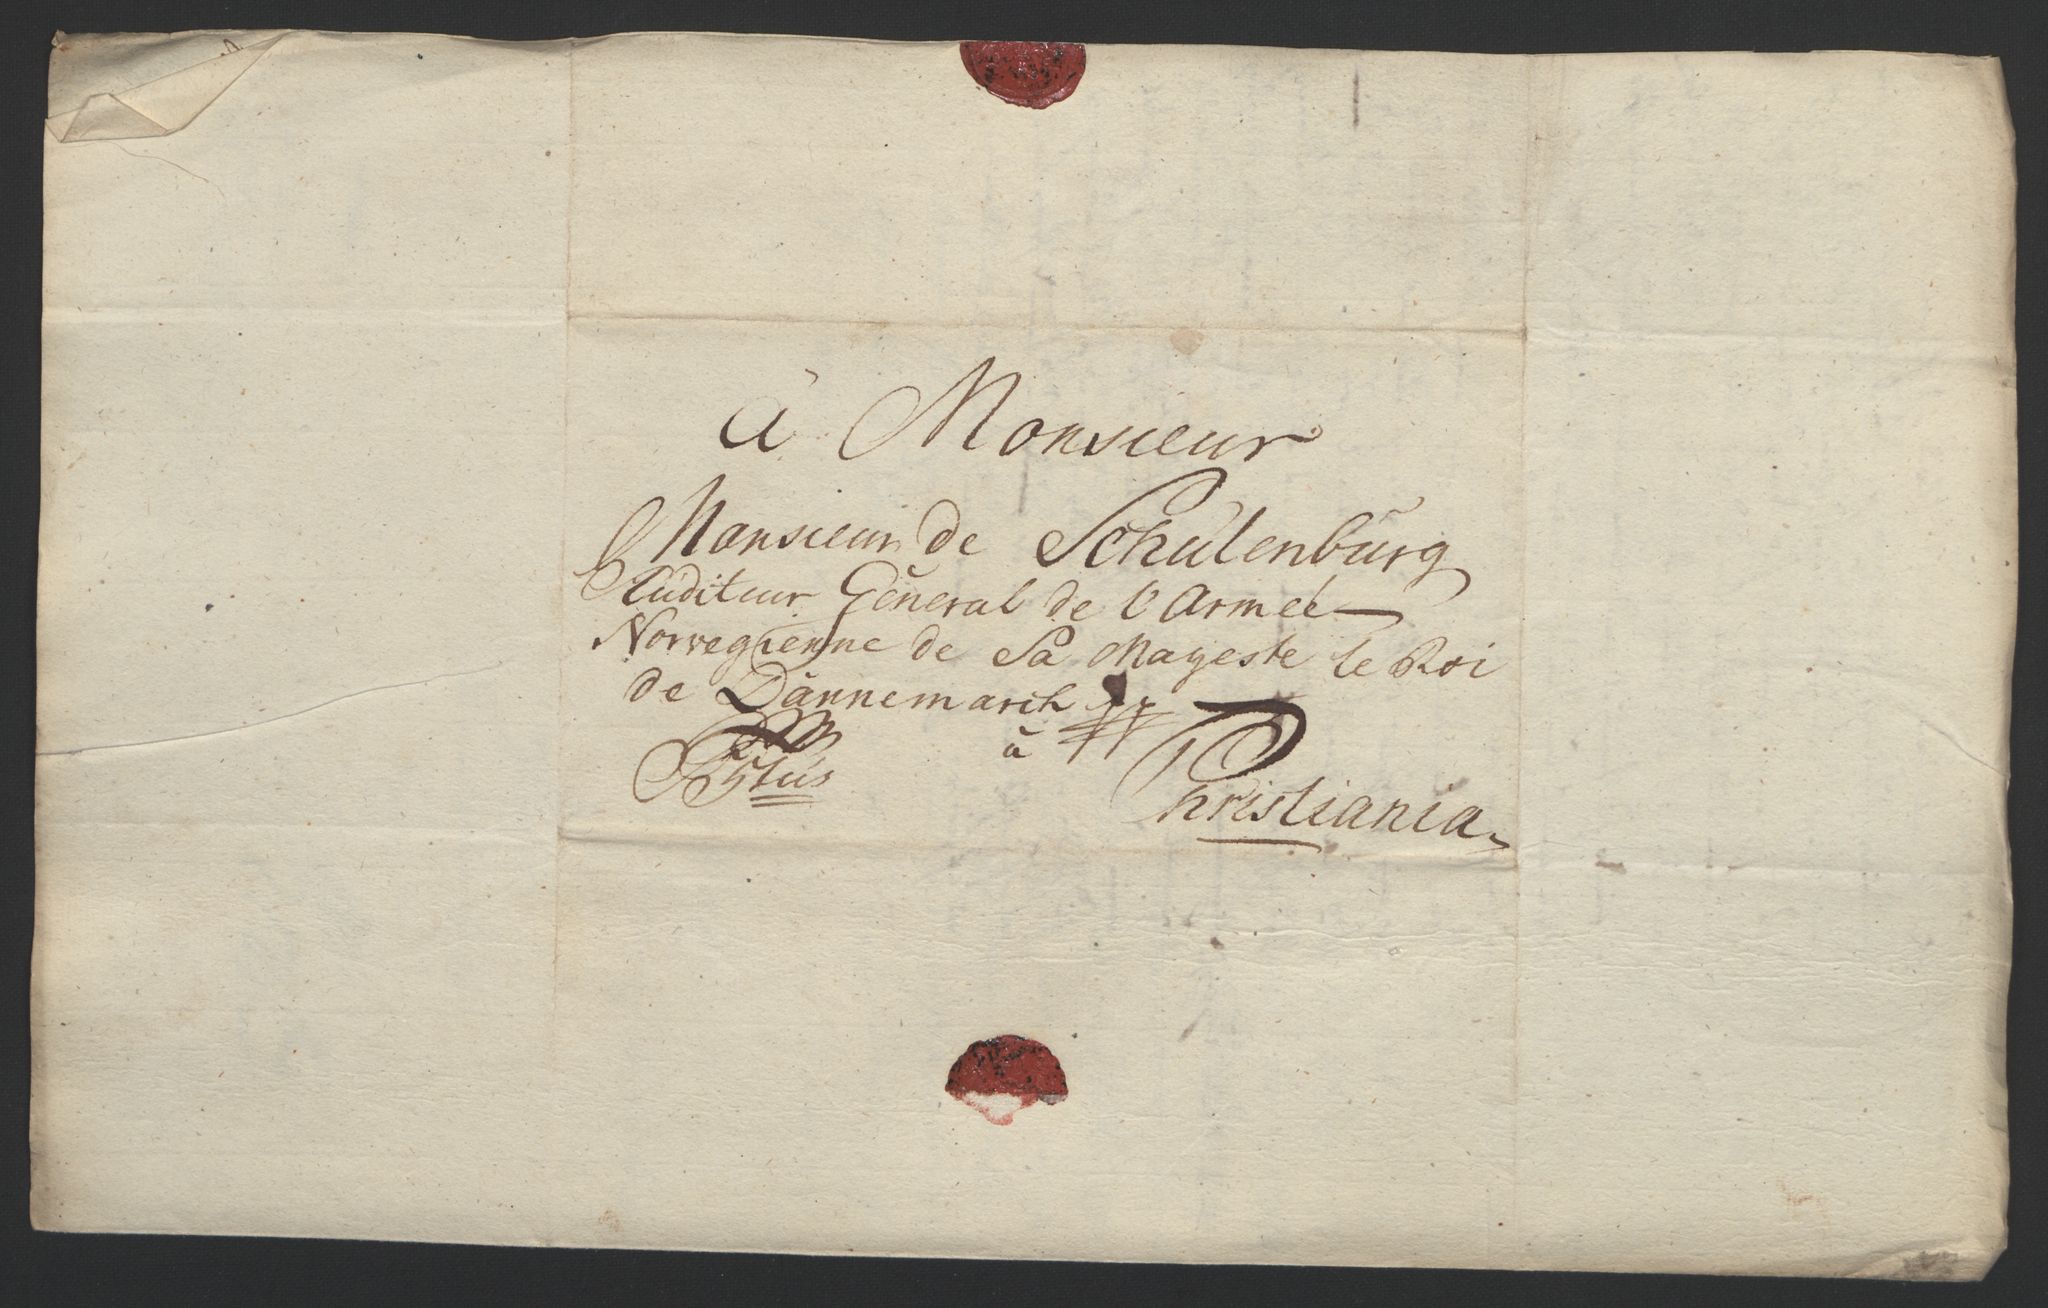 à Monsieur
Monsieur de Schülenbürg
Auditeur Géneral de l'Armeé
Norvegienne de Sa Mayeste le Roi
de Dannemarck
à
Christiania